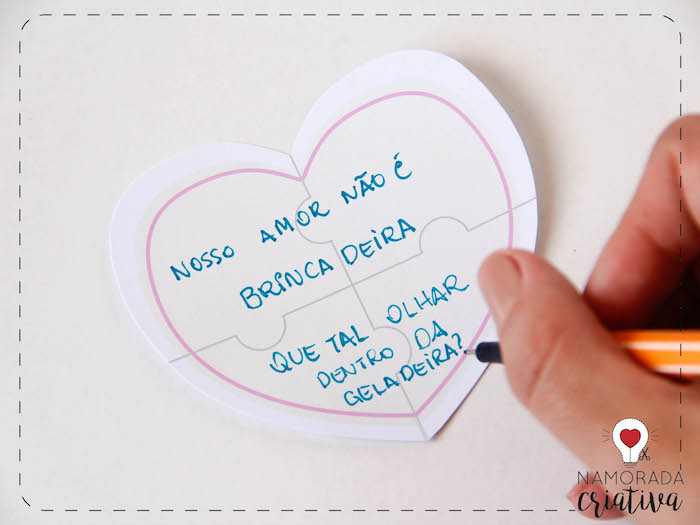 NOSSO AMOR NÃO É
BRINCADEIRA
QUE TAL OLHAR
DENTRO DA
GELADEIRA?
NAMORADA
criativa